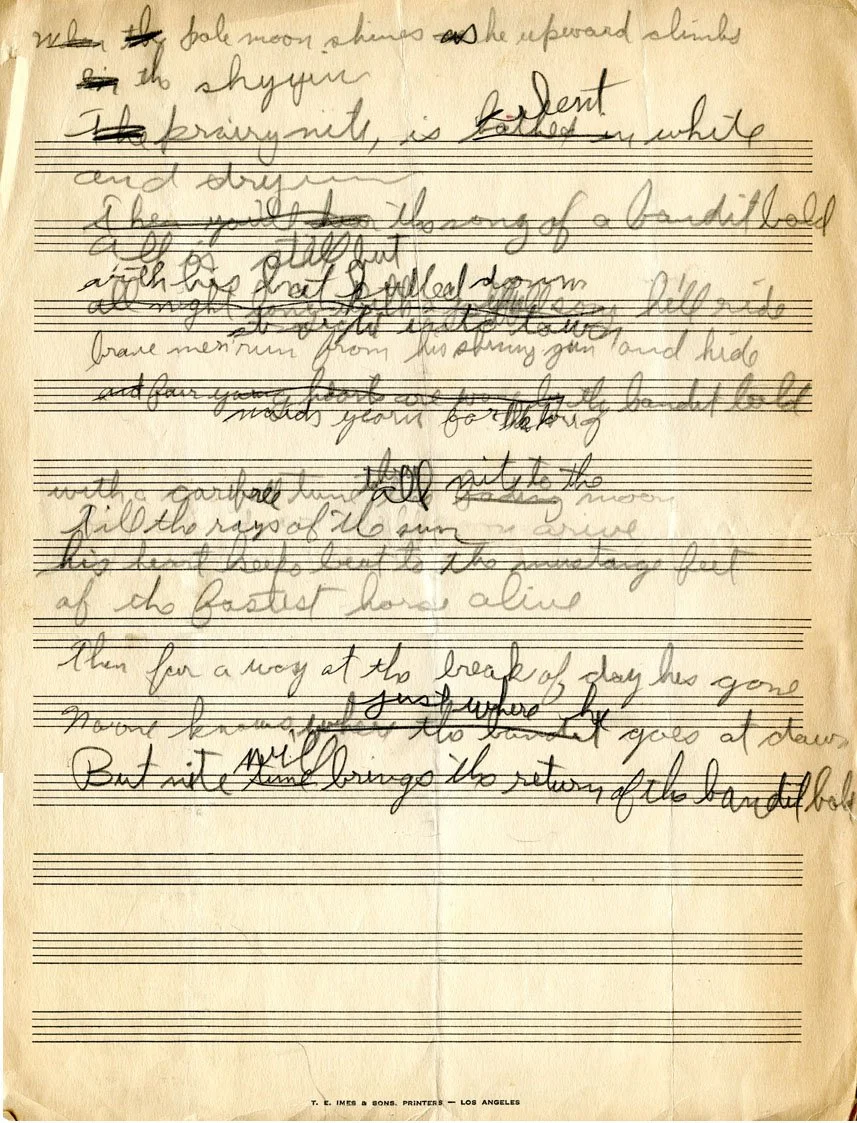 When the pale moon shines as he upward climbs
in the skyyuu
ardent
The prairy nite, is bathed in white
and dryuuu
Then you'll hear the song of a bandit bold
All is still but
with his hat pulled down
all night long he'll ride
straight into town
brave men run from his shiny gun and hide
and fair young hearts are the bandit bold
maids yearn for
thru all nite to the
with a carefree tune fading moon
Till the rays of the sun arive
his heart keeps beat to the mustang feet
of the fastest horse alive
Then far a way at the break of day hes gone
just where he
No one knows where the bandit goes at dawn
will
But nite time brings the return of the bandit bold
T. E. IMES & SONS. PRINTERS — LOS ANGELES